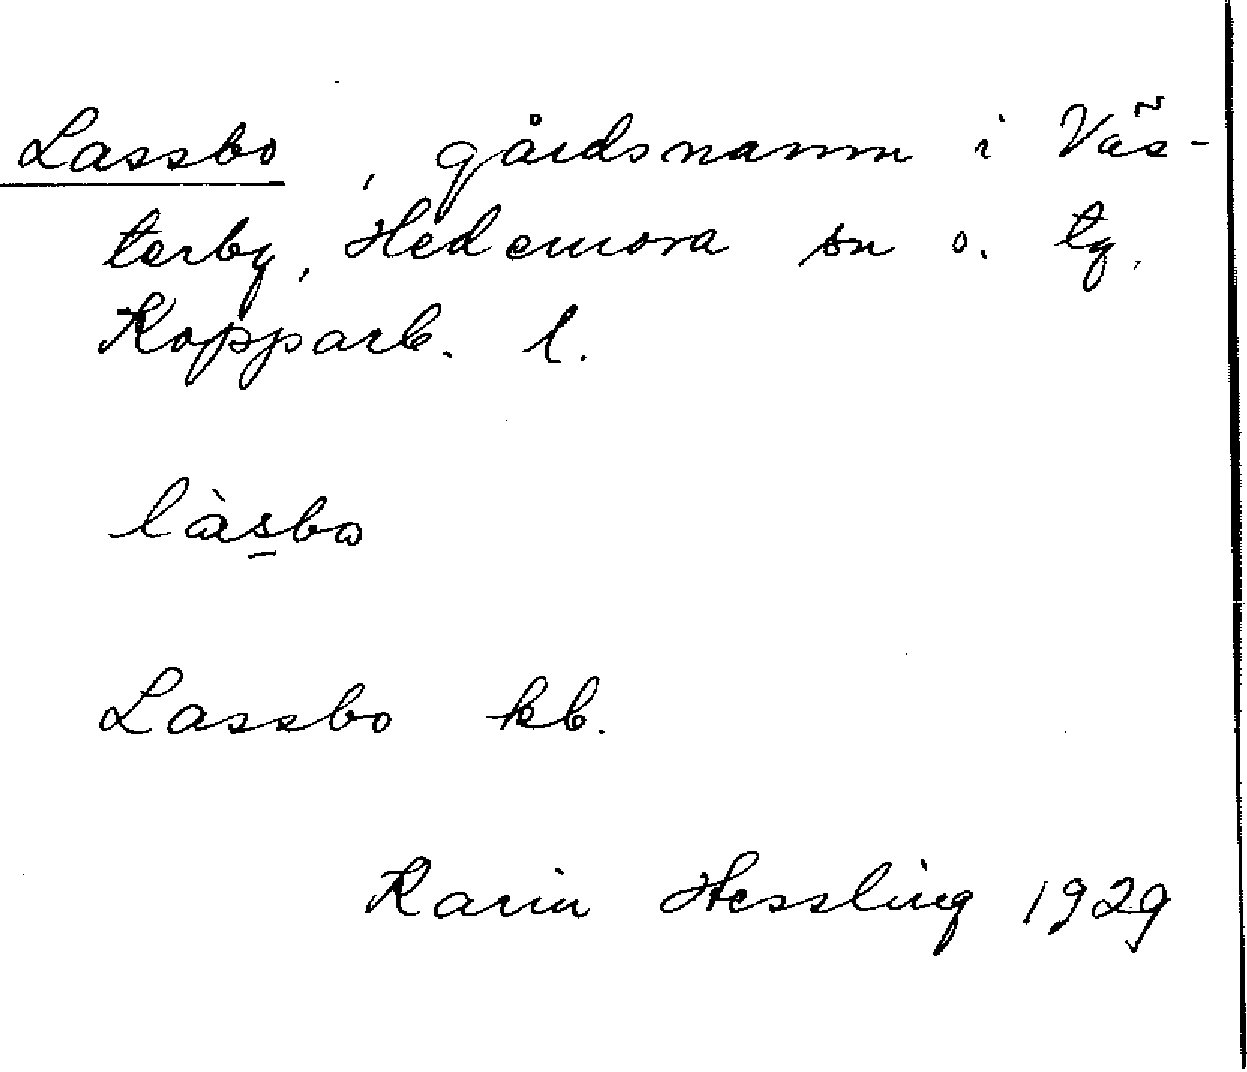 Lassbo, gårdsnamn i Väs-
terby, Hedemora sn o. tg,
Kopparb. l.
làs̲bo
Lassbo kb.
Karin Hessling 1929